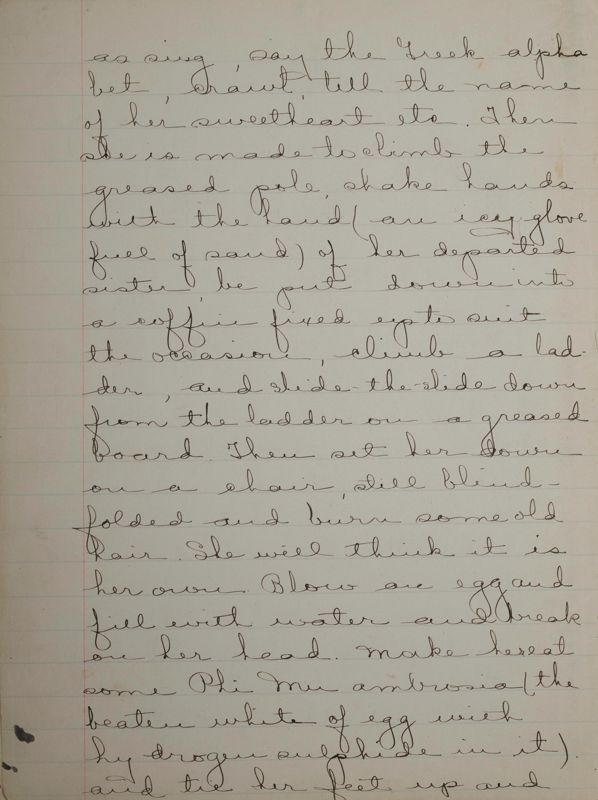 as sing, say the Greek alpha
bet, crawl, tell the name
of her sweetheart etc. Then
she is made to climb the
greased pole, shake hands
with the hand (an icy glove
full of sand) of her departed
sister, be put down into
a coffin fixed up to suit
the occasion, climb a lad-
der, and slide-the-slide down
from the ladder on a greased
board. Then set her down
on a chair, still blind-
folded and burn some old
hair. She will think it is
her own. Blow an egg and
fill with water and break
on her head. Make her eat
some Phi Mu ambrosia (the
beaten white of egg with
hydrogen sulphide in it).
and tie her feet up and